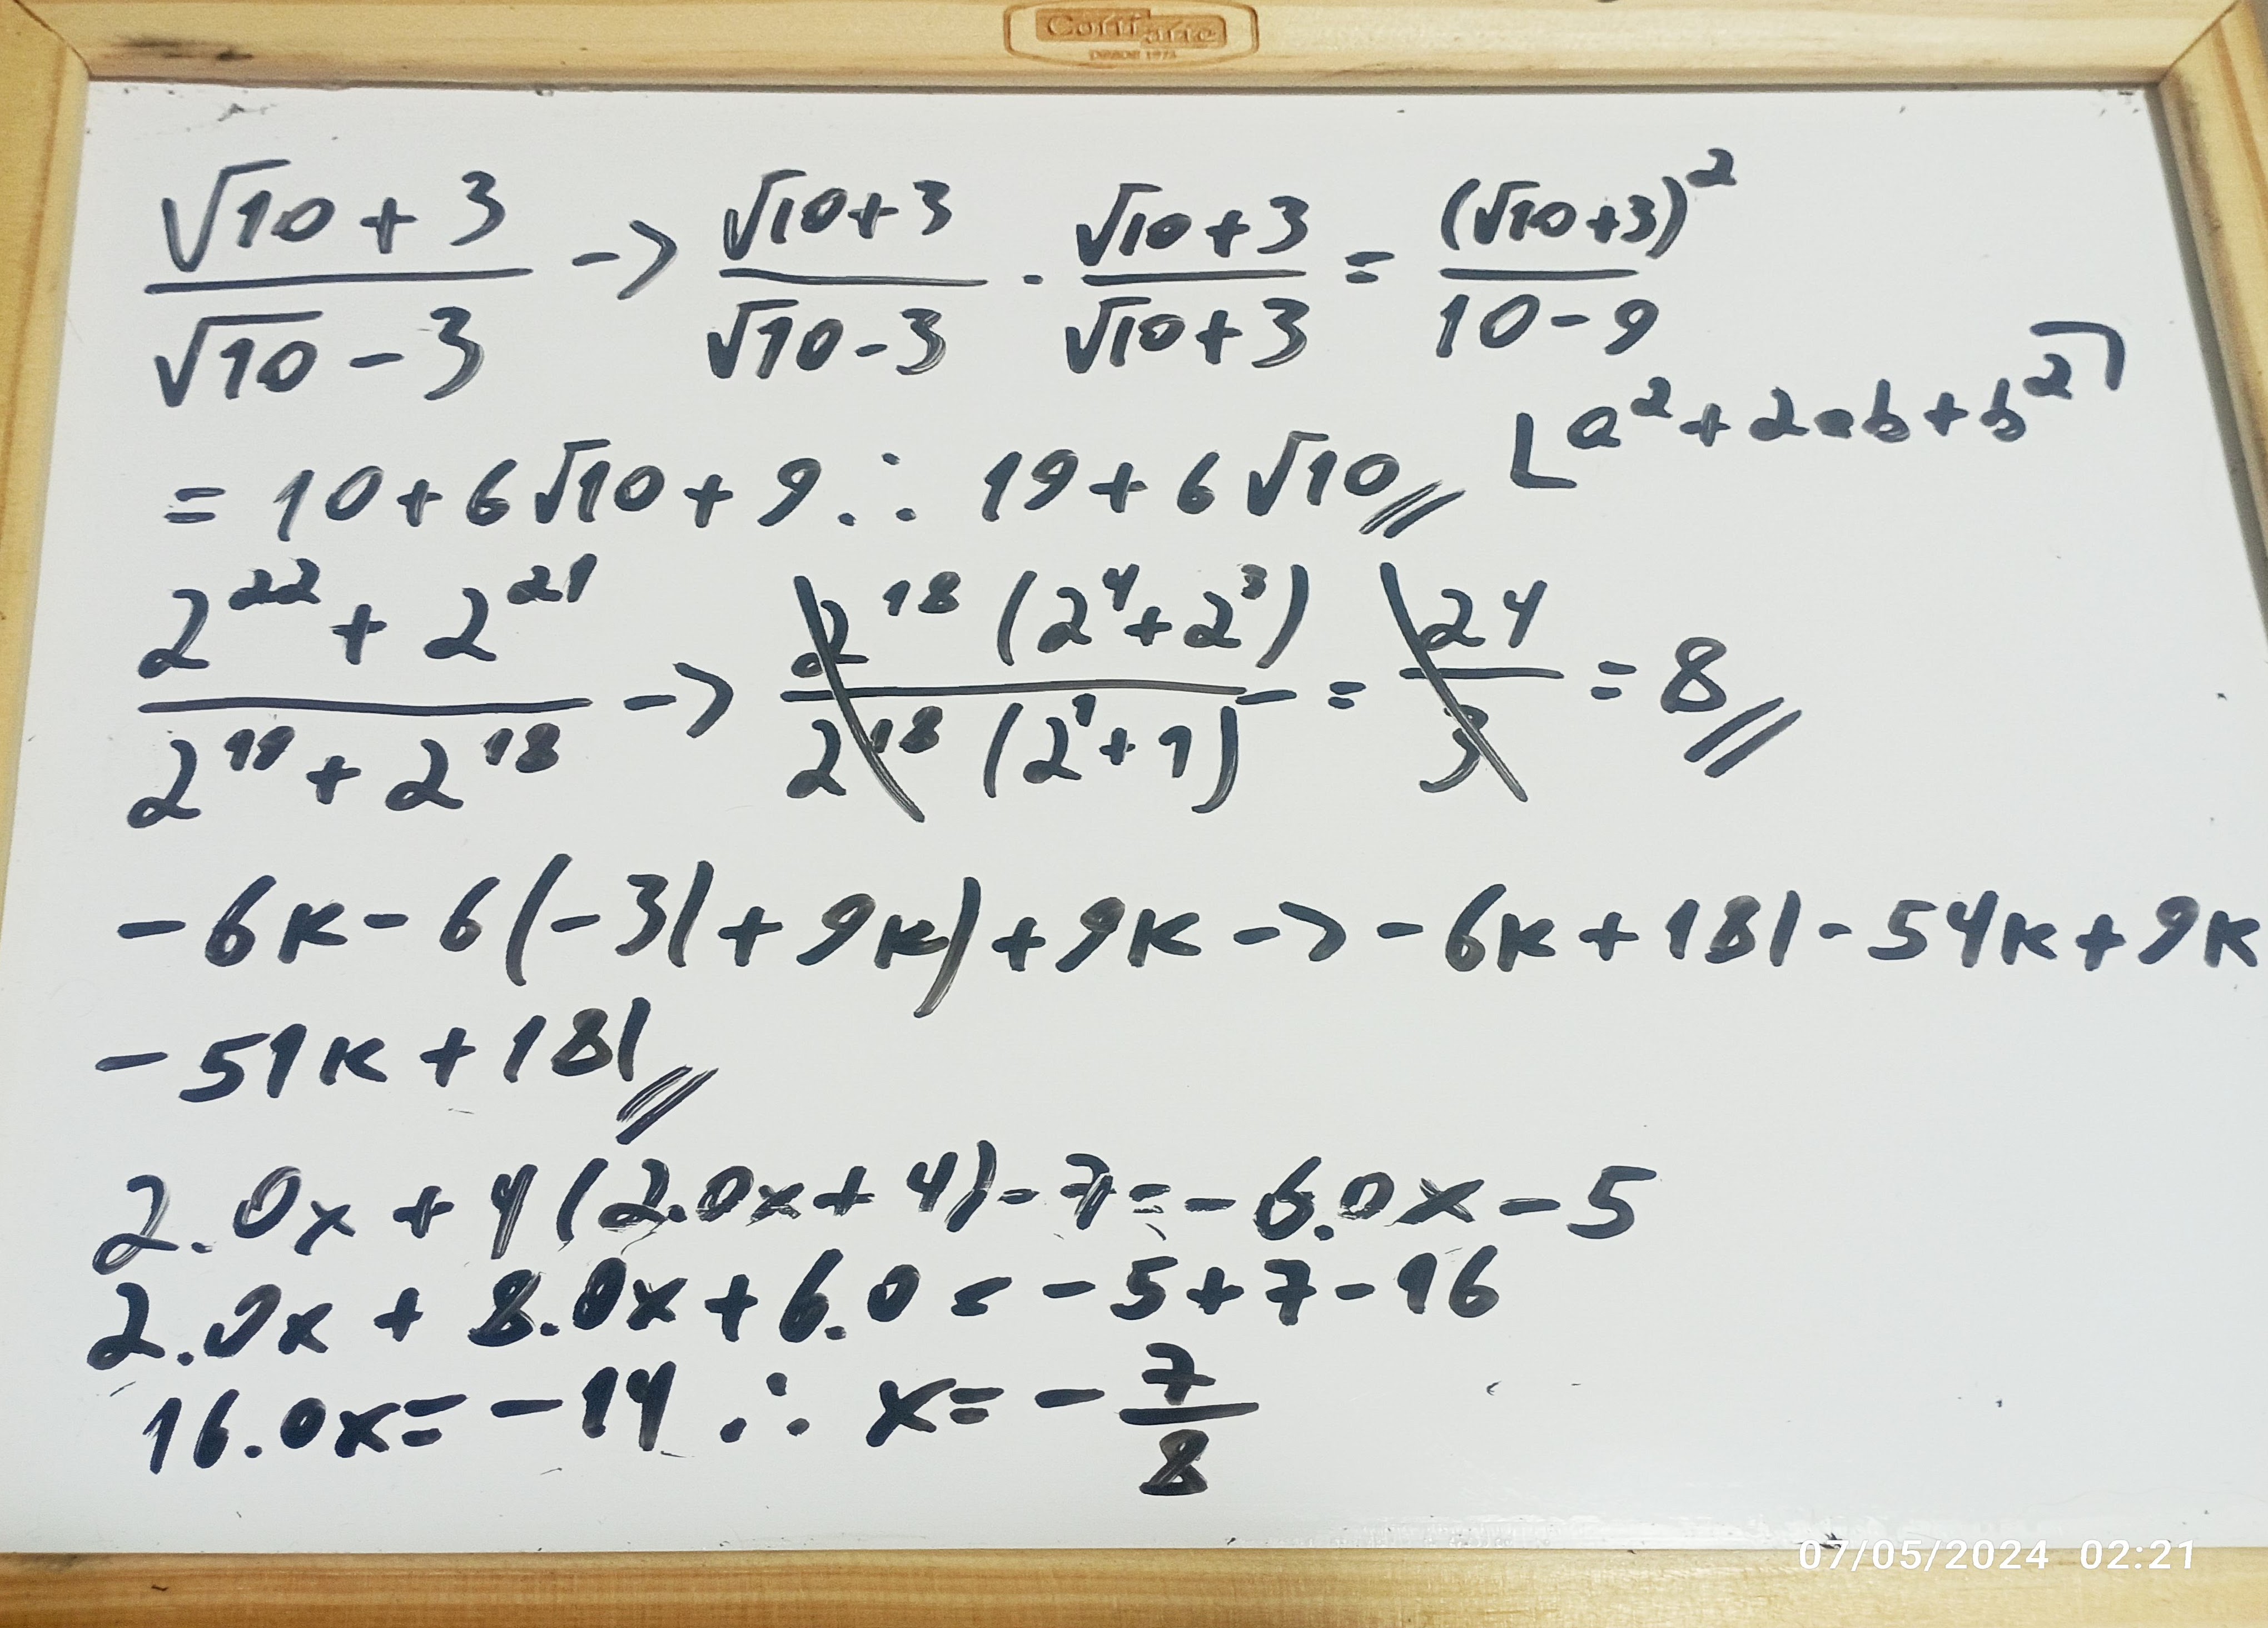 Confiarte
DESDE 1974
√10 + 3 / √10 - 3 -> √10+3 / √10-3 . √10+3 / √10+3 = (√10+3)² / 10-9
[a²+2ab+b²]
= 10+6√10+9 ∴ 19+6√10//
2²² + 2²¹ / 2¹⁹ + 2¹⁸ -> 2¹⁸ (2⁴+2³) / 2¹⁸ (2¹+1) = 24 / 3 = 8//
-6k-6(-3l+9k)+9k -> -6k+18l-54k+9k
-51k+18l//
2.0x+4(2.0x+4)-7=-6.0x-5
2.0x+8.0x+6.0=-5+7-16
16.0x=-14 ∴ x=-7/8
07/05/2024 02:21